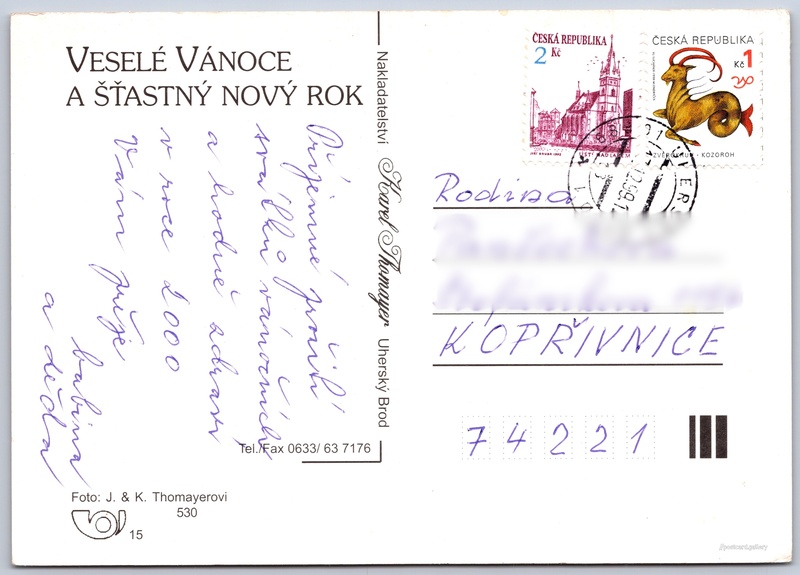 VESELÉ VÁNOCE
A ŠŤASTNÝ NOVÝ ROK
Příjemné prožití
svátků vánočních
a hodně zdraví
v roce 2000
Vám přeje
babina
a děda
Tel./Fax 0633/ 63 7176
Foto: J. & K. Thomayerovi
530
15
Nakladatelství Karel Thomayer Uherský Brod
ČESKÁ REPUBLIKA
2 Kč
ÚSTÍ NAD LABEM
ČESKÁ REPUBLIKA
Kč 1
ZVĚROKRUH - KOZOROH
Rodina
KOPŘIVNICE
74221